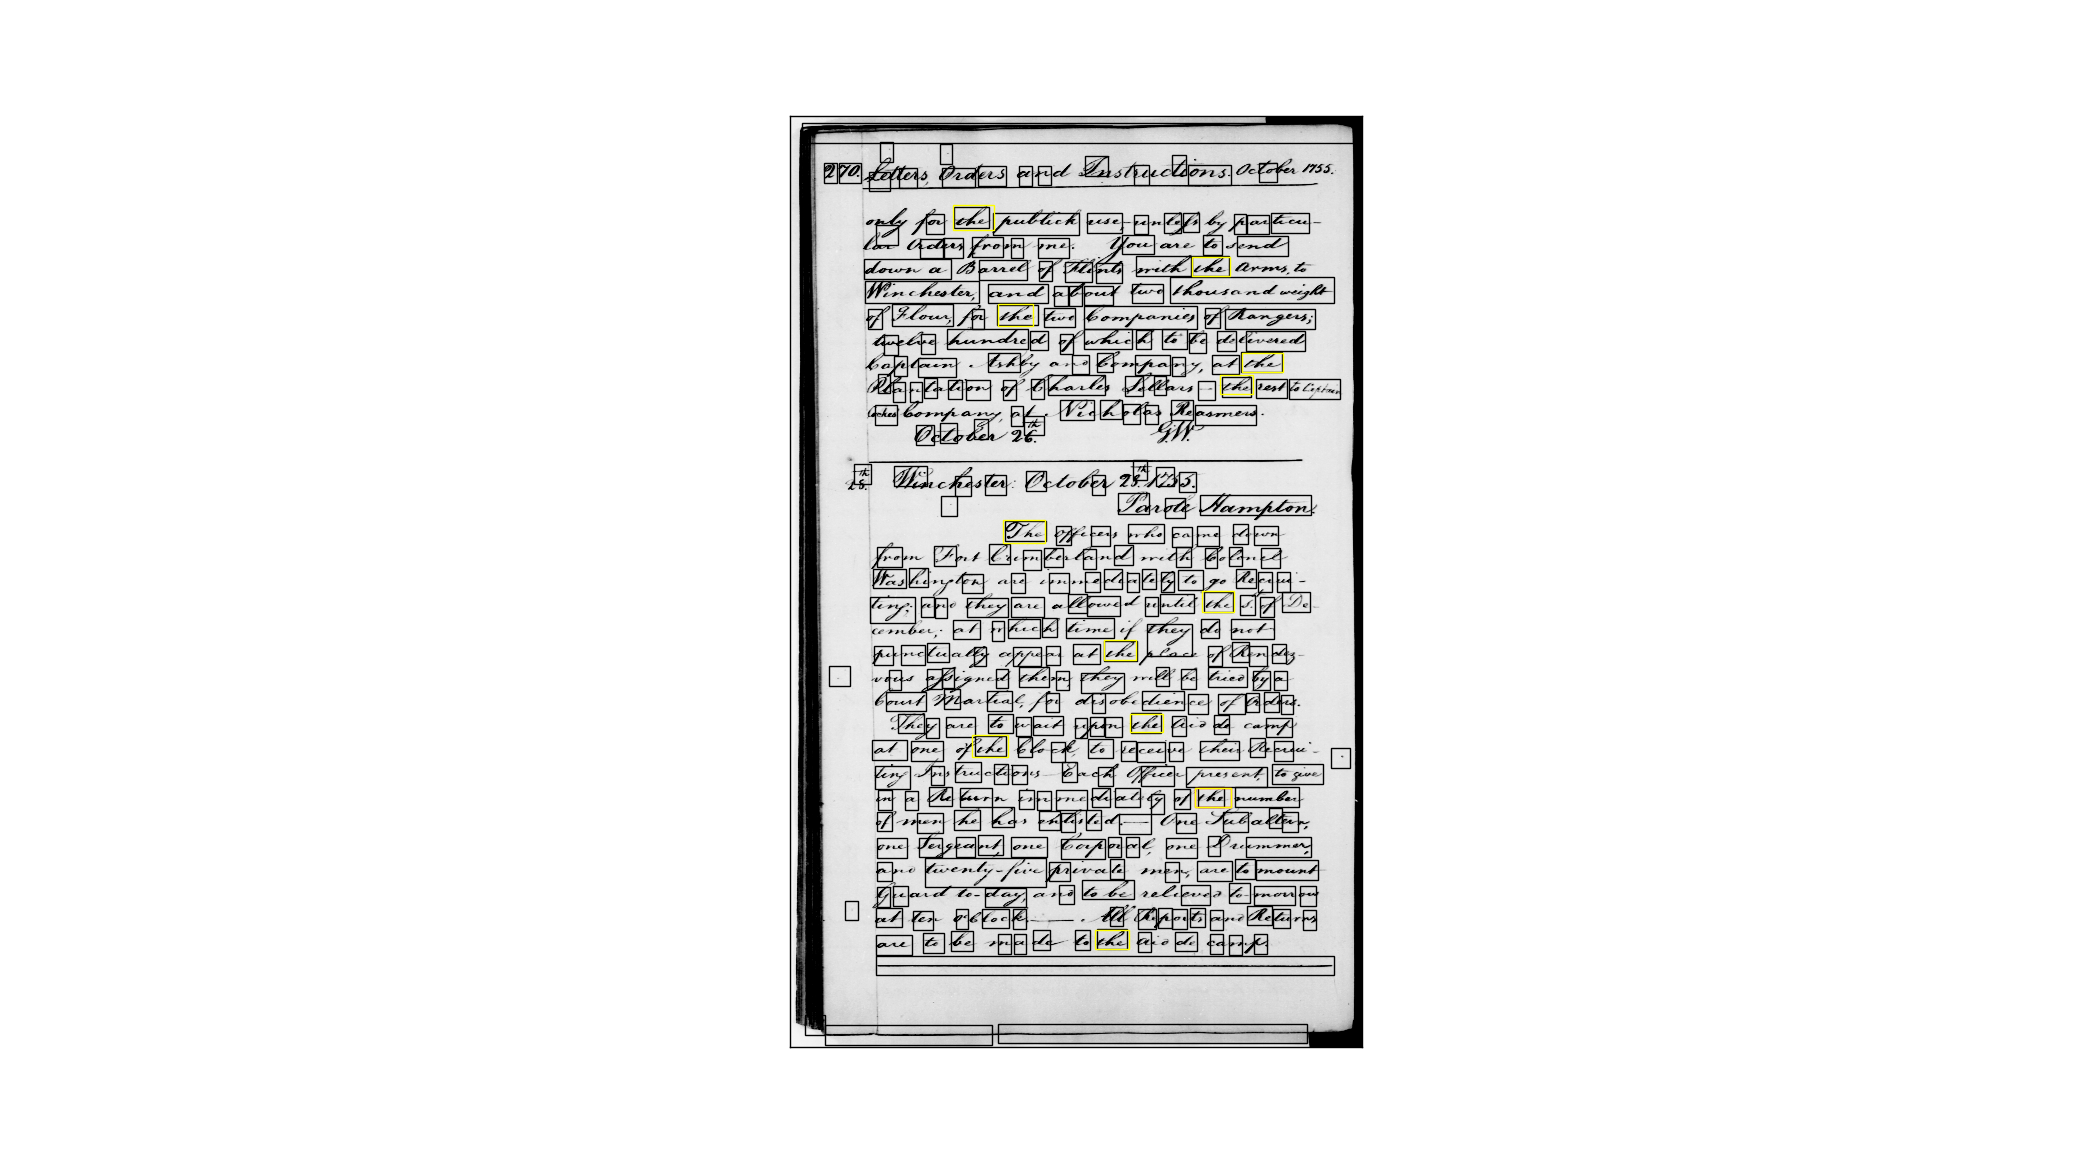 270. Letters, Orders and Instructions. October 1755.
only for the publick use, unless by particu-
lar Orders from me. You are to send
down a Barrel of Flints with the Arms, to
Winchester, and about two thousand weight
of Flour, for the two Companies of Rangers;
twelve hundred of which to be delivered
Captain Ashby and Company, at the
Plantation of Charles Sellars - the rest to Captain
Cockes Company, at Nicholas Reasmers.
October 26.th G.W.
28.th Winchester: October 28.th 1755.
Parole Hampton.
The Officers who came down
from Fort Cumberland with Colonel
Washington are immediately to go Recrui-
ting; and they are allowed until the 1.st of De-
cember; at which time if they do not
punctually appear at the place of Rendez-
vous assigned them, they will be tried by a
Court Martial, for disobedience of Orders.
They are to wait upon the Aid de camp
at one of the Clock, to receive their Recrui-
ting Instructions - Each Officer present, to give
in a Return immediately of the number
of men he has enlisted. - One Subaltern,
one Sergeant, one Corporal, one Drummer,
and twenty-five private men, are to mount
Guard to-day, and to be relieved to-morrow
at ten o'Clock. - . All Reports and Returns
are to be made to the Aid de camp.